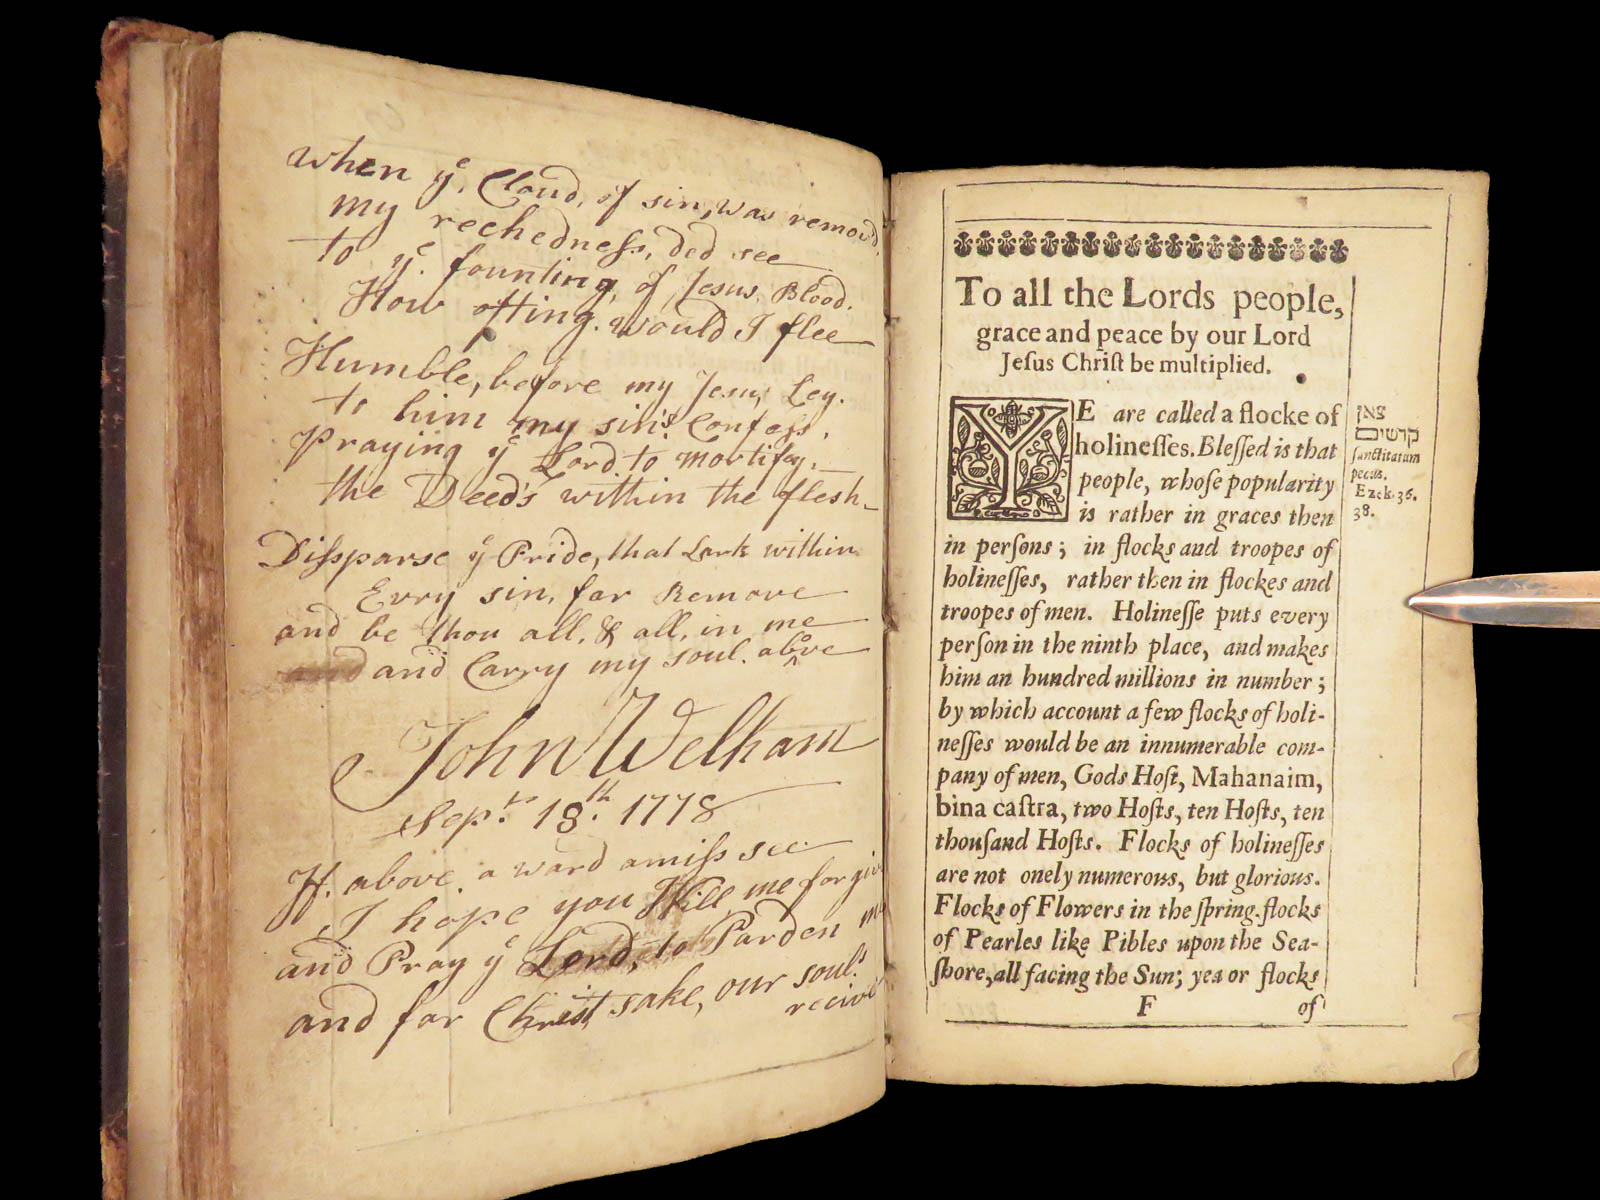 when yͤ Cloud, of sin, was removd.
my rechedneſs, ded see
to yͤ founting, of Jesus, Blood.
How ofting. would I flee
Humble, before my Jesus Ley.
to him my sin's Confess,
Praying yͤ Lord to mortifey,
the Deed's within the flesh
Diſsparse yͤ Pride, that Lork within
Evry sin, far Remove
and be thou all, & all, in me
and Carry my soul. above
John Welham
Sep.ᵗʳ 18.ᵗʰ 1778
If. above. a ward amiſs see
I hope you Will me forgive
and Pray yͤ Lord, to Parden me
and far Christ sake, our soul's
recive
To all the Lords people,
grace and peace by our Lord
Jeſus Chriſt be multiplied.
YE are called a flocke of
holineſſes. Bleſſed is that
people, whoſe popularity
is rather in graces then
in perſons; in flocks and troopes of
holineſſes, rather then in flockes and
troopes of men. Holineſſe puts every
perſon in the ninth place, and makes
him an hundred millions in number;
by which account a few flocks of holi-
neſſes would be an innumerable com-
pany of men, Gods Hoſt, Mahanaim,
bina caſtra, two Hoſts, ten Hoſts, ten
thouſand Hoſts. Flocks of holineſſes
are not onely numerous, but glorious.
Flocks of Flowers in the ſpring. flocks
of Pearles like Pibles upon the Sea-
ſhore, all facing the Sun; yea or flocks
F of
צאן
קדשים
ſanctitatum
pecus.
Ezek. 36.
38.